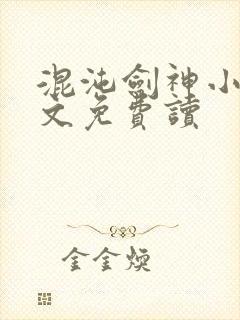 混沌劍神小
文免費讀
金金煥